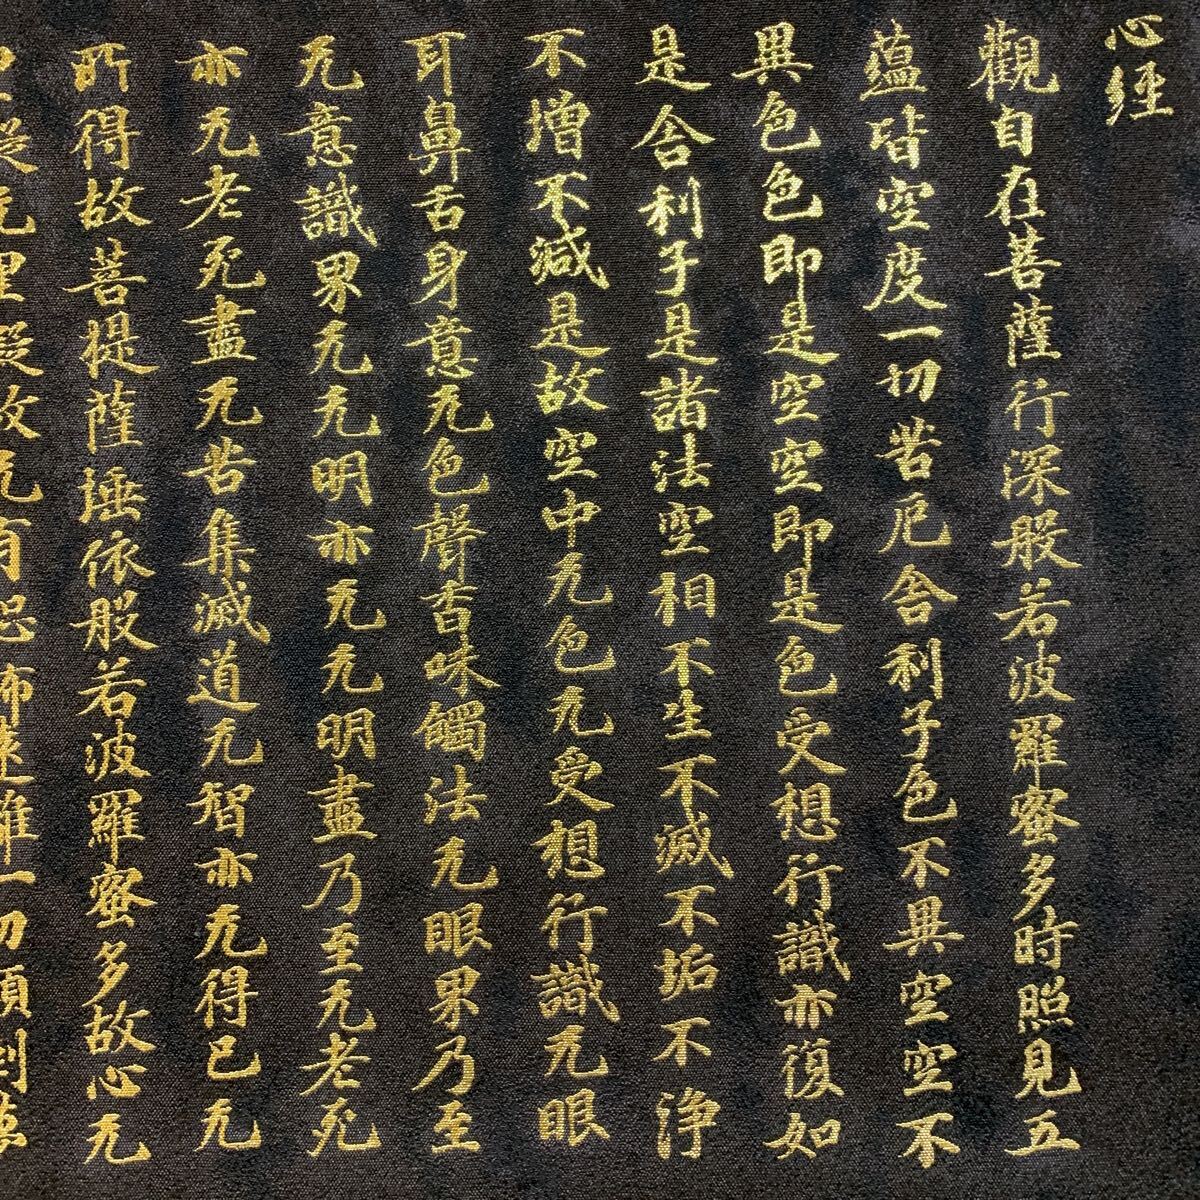 心経
觀自在菩薩行深般若波羅蜜多時照見五
蘊皆空度一切苦厄舍利子色不異空空不
異色色即是空空即是色受想行識亦復如
是舍利子是諸法空相不生不滅不垢不浄
不增不減是故空中无色无受想行識无眼
耳鼻舌身意无色聲香味觸法无眼界乃至
无意識界无无明亦无无明盡乃至无老死
亦无老死盡无苦集滅道无智亦无得已无
所得故菩提薩埵依般若波羅蜜多故心无
罣礙无罣礙故无有恐怖遠離一切顛倒夢